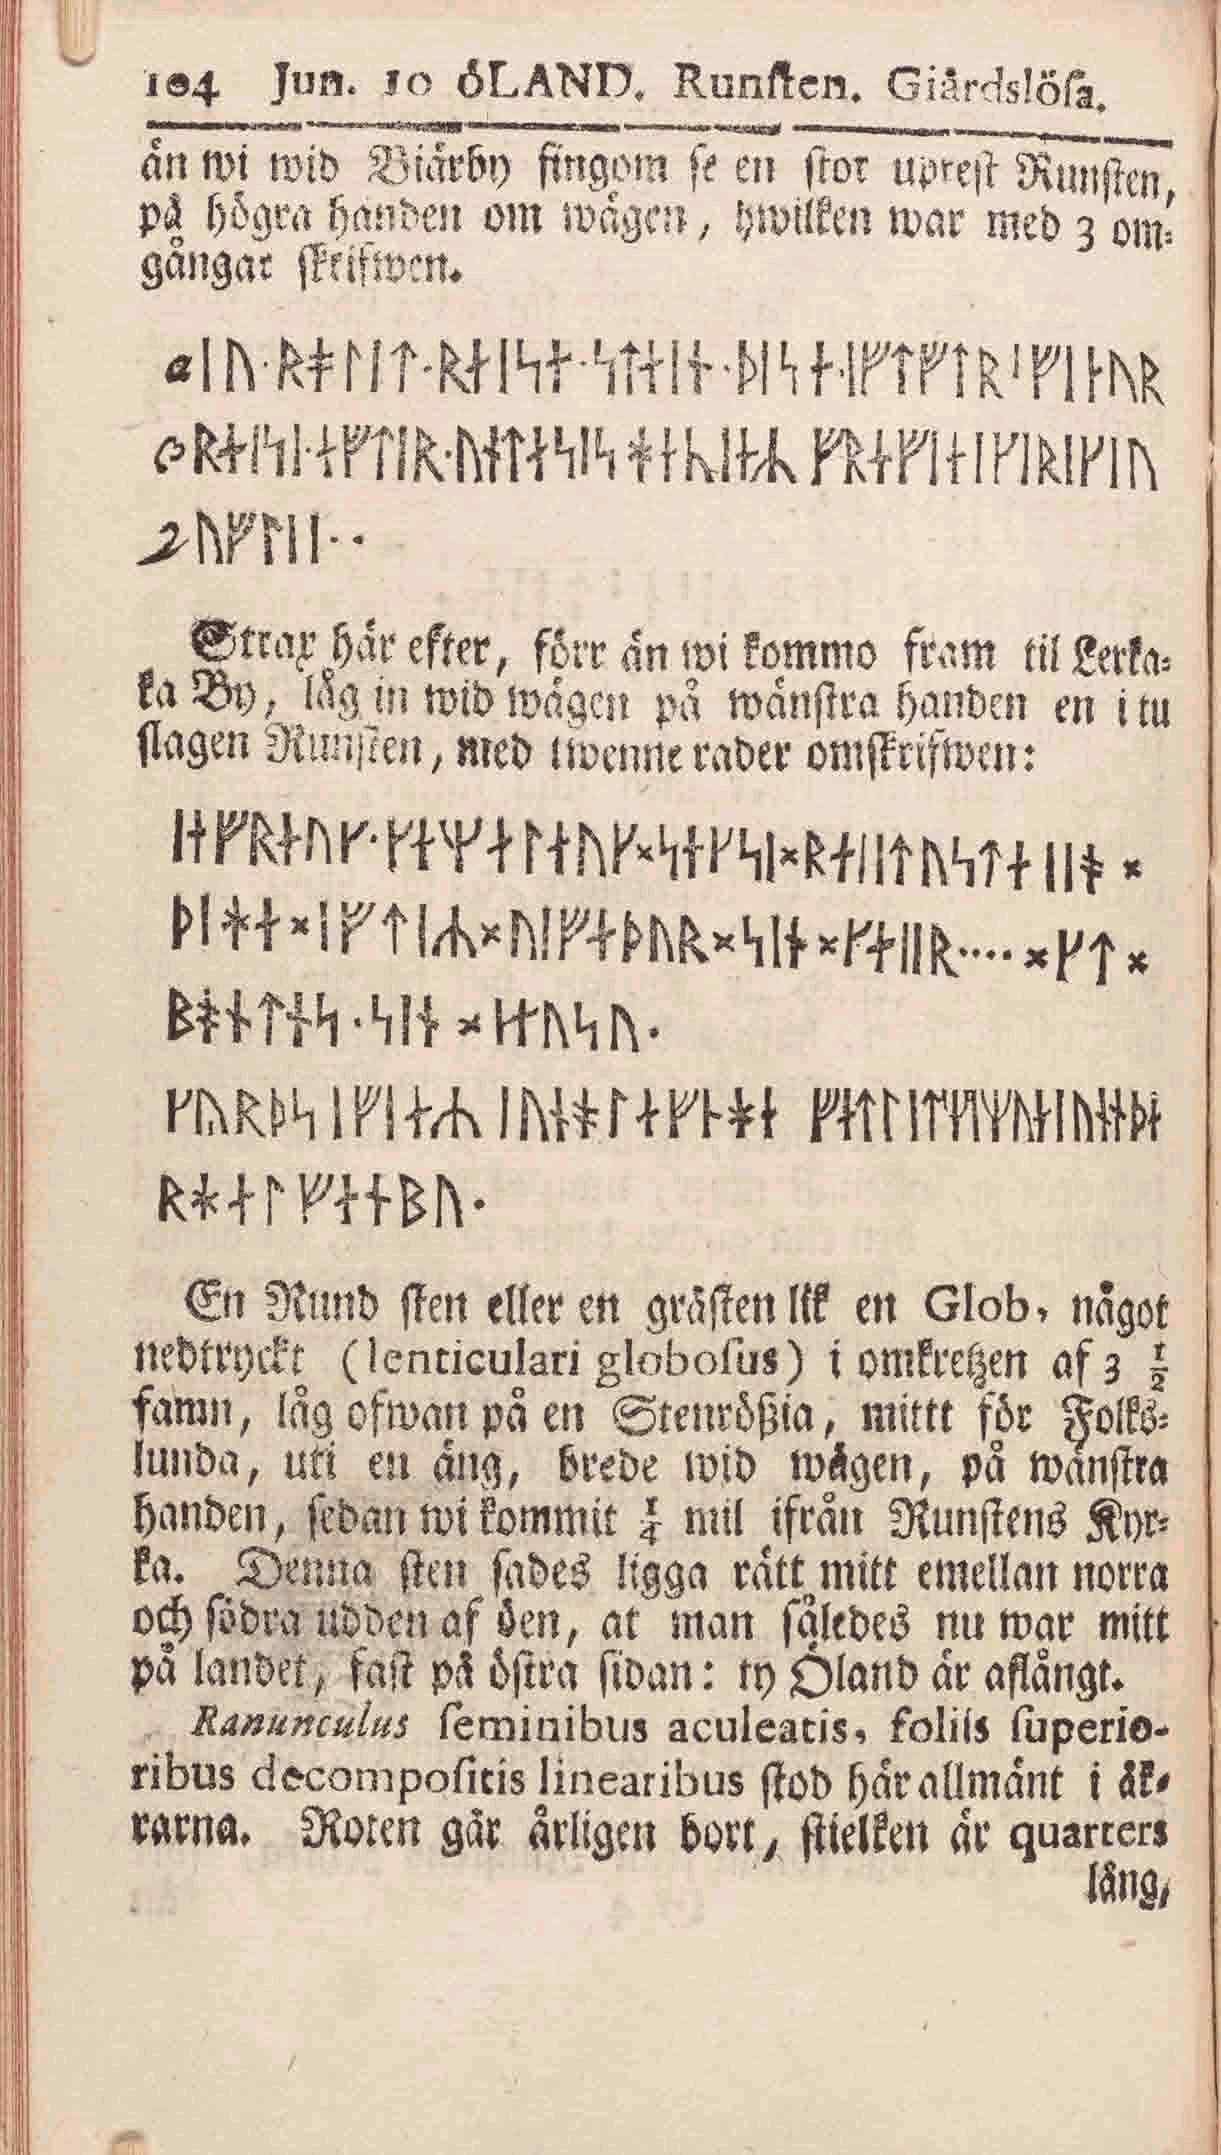 104 Jun. 10 ÖLAND. Runſten. Giärdslöſa.
än wi wid Biärby fingom ſe en ſtor upreſt Runſten,
på högra handen om wägen, hwilken war med 3 om-
gångar ſkrifwen.
a ᛁᚢ·ᚱᚯᛚᛁᛏ·ᚱᛅᛁᛋᛅ·ᛋᛏᛅᛁᚾ·ᚦᛁᛋᛅ·ᛁᚠᛏᚠᛏᚱᛁᚠᛁᚿᚢᚱ
ᚱᛅᛁᛋᛁ·ᛅᚠᛏᛁᚱ·ᚢᚾᛏᛅᛋᛁᛋ
2 ᚢᚠᛚᛁᛁ··
Strax här efter, förr än wi kommo fram til Lerka-
ka By, låg in wid wägen på wänſtra handen en i tu
ſlagen Runſten, med twenne rader omſkrifwen:
ᛁᚾᚠᚱᛅᚢᚴ·ᚴᛅᛘᛅᛚᛅᚢᚴ×ᛋᛅᚴᛋᛁ×ᚱᛅᛁᛁᛏᚢᛋᛏᛅᛁᛁᚯ×
ᚦᛁᚼᛅ×ᛁᚠᛏᛁᛦ×ᚢᛁᚠᛅᚦᚢᚱ×ᛋᛁᚾ×ᚴᛅᛁᛁᚱ····×ᚴᛏ×
ᛒᚯᚾᛏᛅᛋ·ᛋᛁᚾ×ᚢᛋᚢ·
ᚱᚼᛅᛚᚠᛅᚾᛒᚢ·
En Rund ſten eller en gräſten lik en Glob, något
nedtryckt (lenticulari globoſus) i omkretzen af 3 1/2
famn, låg ofwan på en Stenrößia, mittt för Folks-
lunda, uti en äng, brede wid wägen, på wänſtra
handen, ſedan wi kommit 1/4 mil ifrån Runſtens Kyr-
ka. Denna ſten ſades ligga rätt mitt emellan norra
och ſödra udden af öen, at man ſåledes nu war mitt
på landet, faſt på öſtra ſidan: ty Öland är aflångt.
Ranunculus ſeminibus aculeatis, foliis ſuperio-
ribus decompoſitis linearibus ſtod här allmänt i åk-
rarna. Roten går årligen bort, ſtielken är quarters
lång,